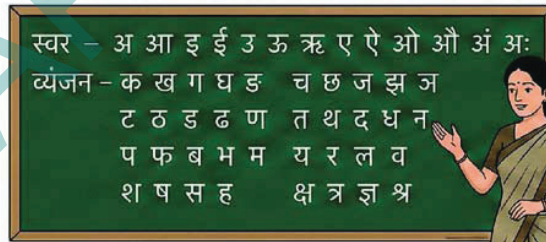 स्वर – अ आ इ ई उ ऊ ऋ ए ऐ ओ औ अं अः
व्यंजन – क ख ग घ ङ च छ ज झ ञ
ट ठ ड ढ ण त थ द ध न
प फ ब भ म य र ल व
श ष स ह क्ष त्र ज्ञ श्र